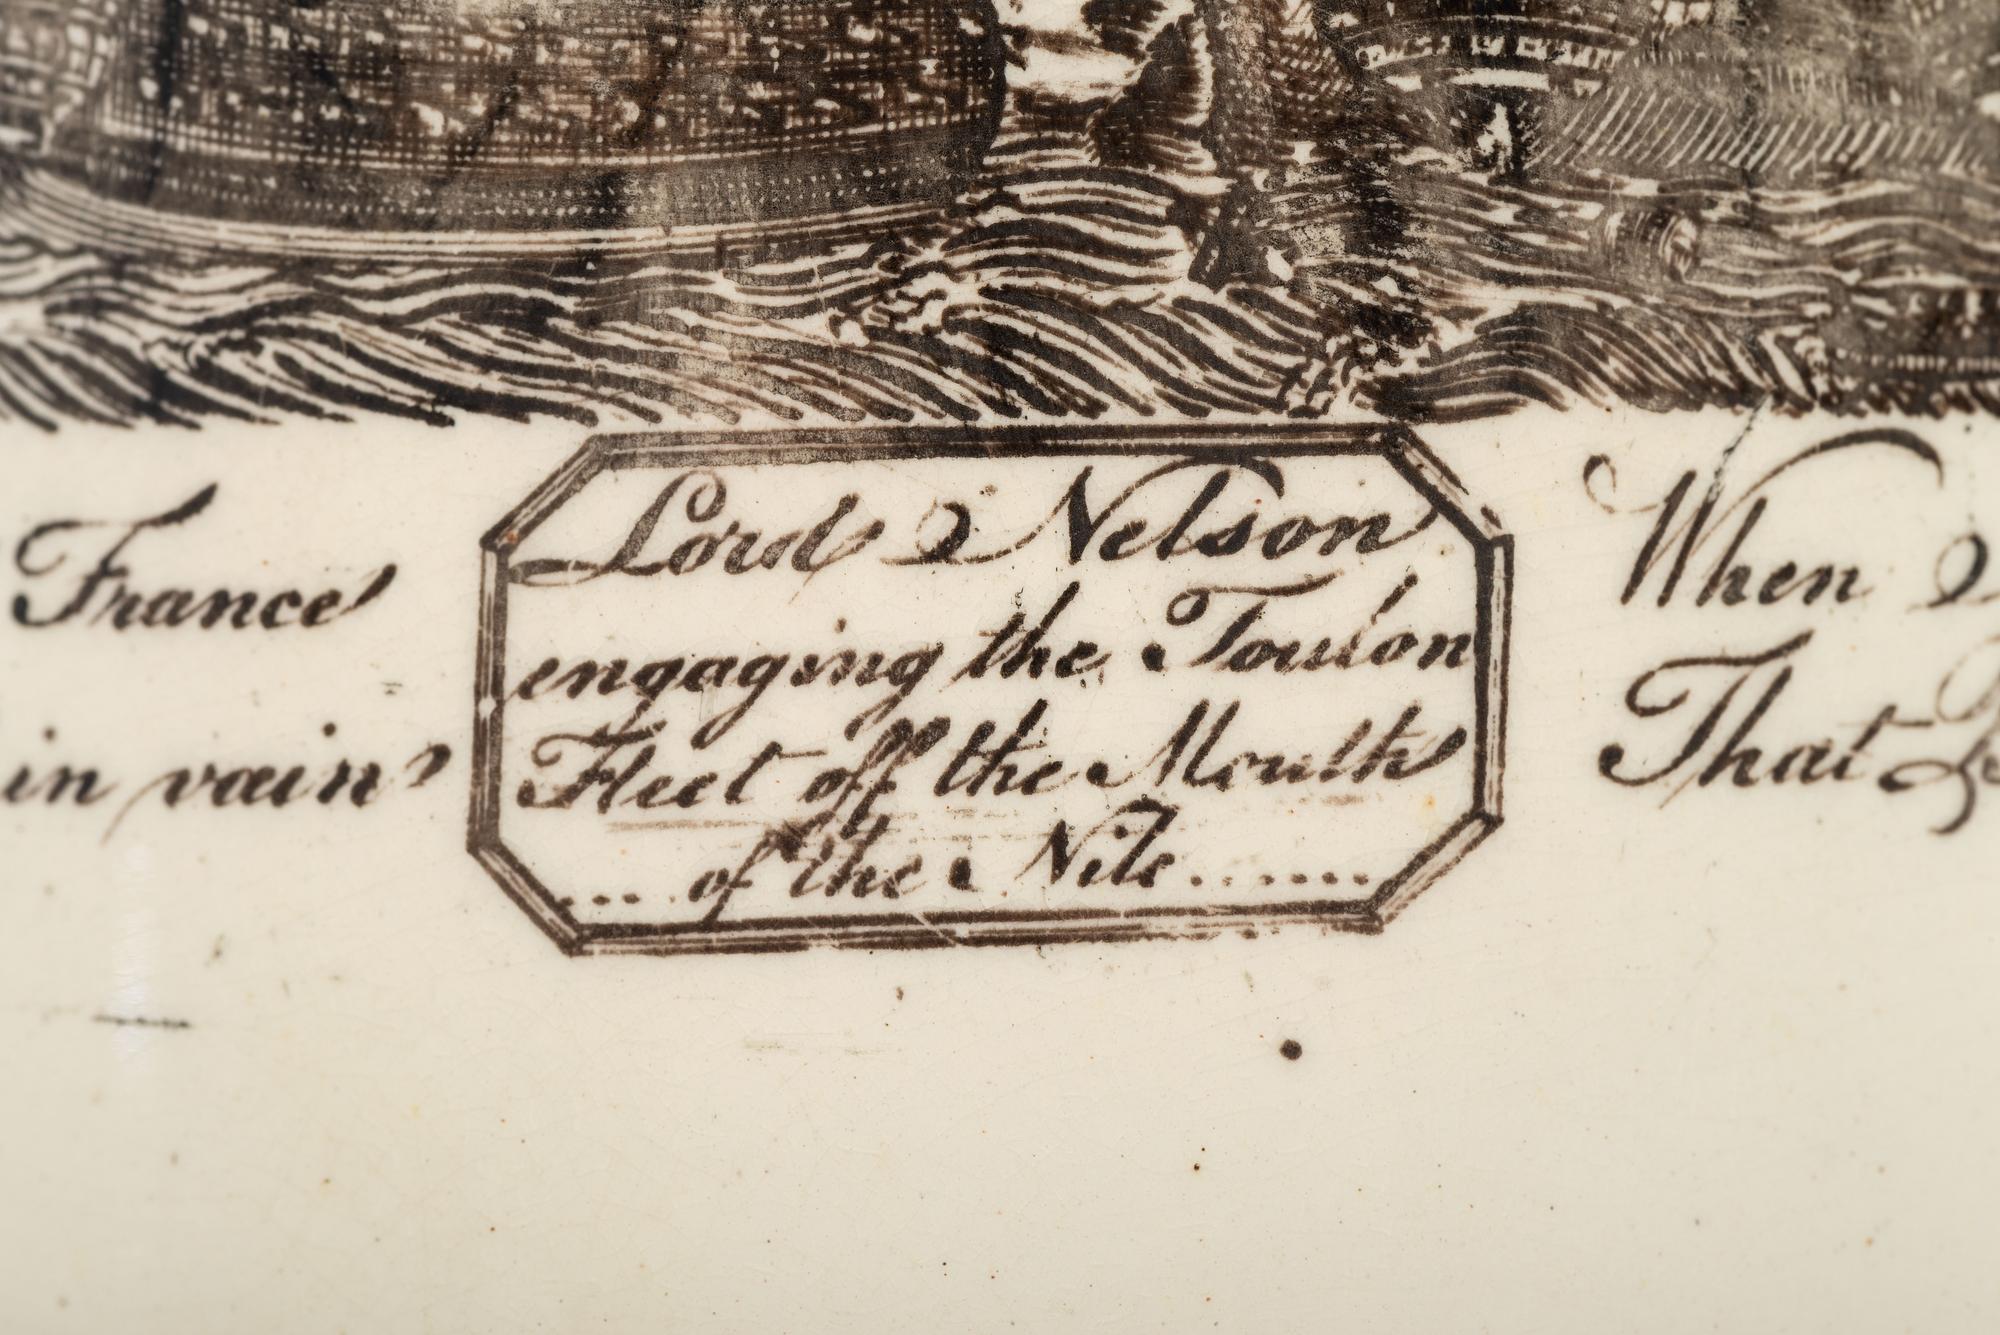 France
in vain
Lord Nelson
engaging the Toulon
Fleet off the Mouth
.... of the Nile .......
When
That